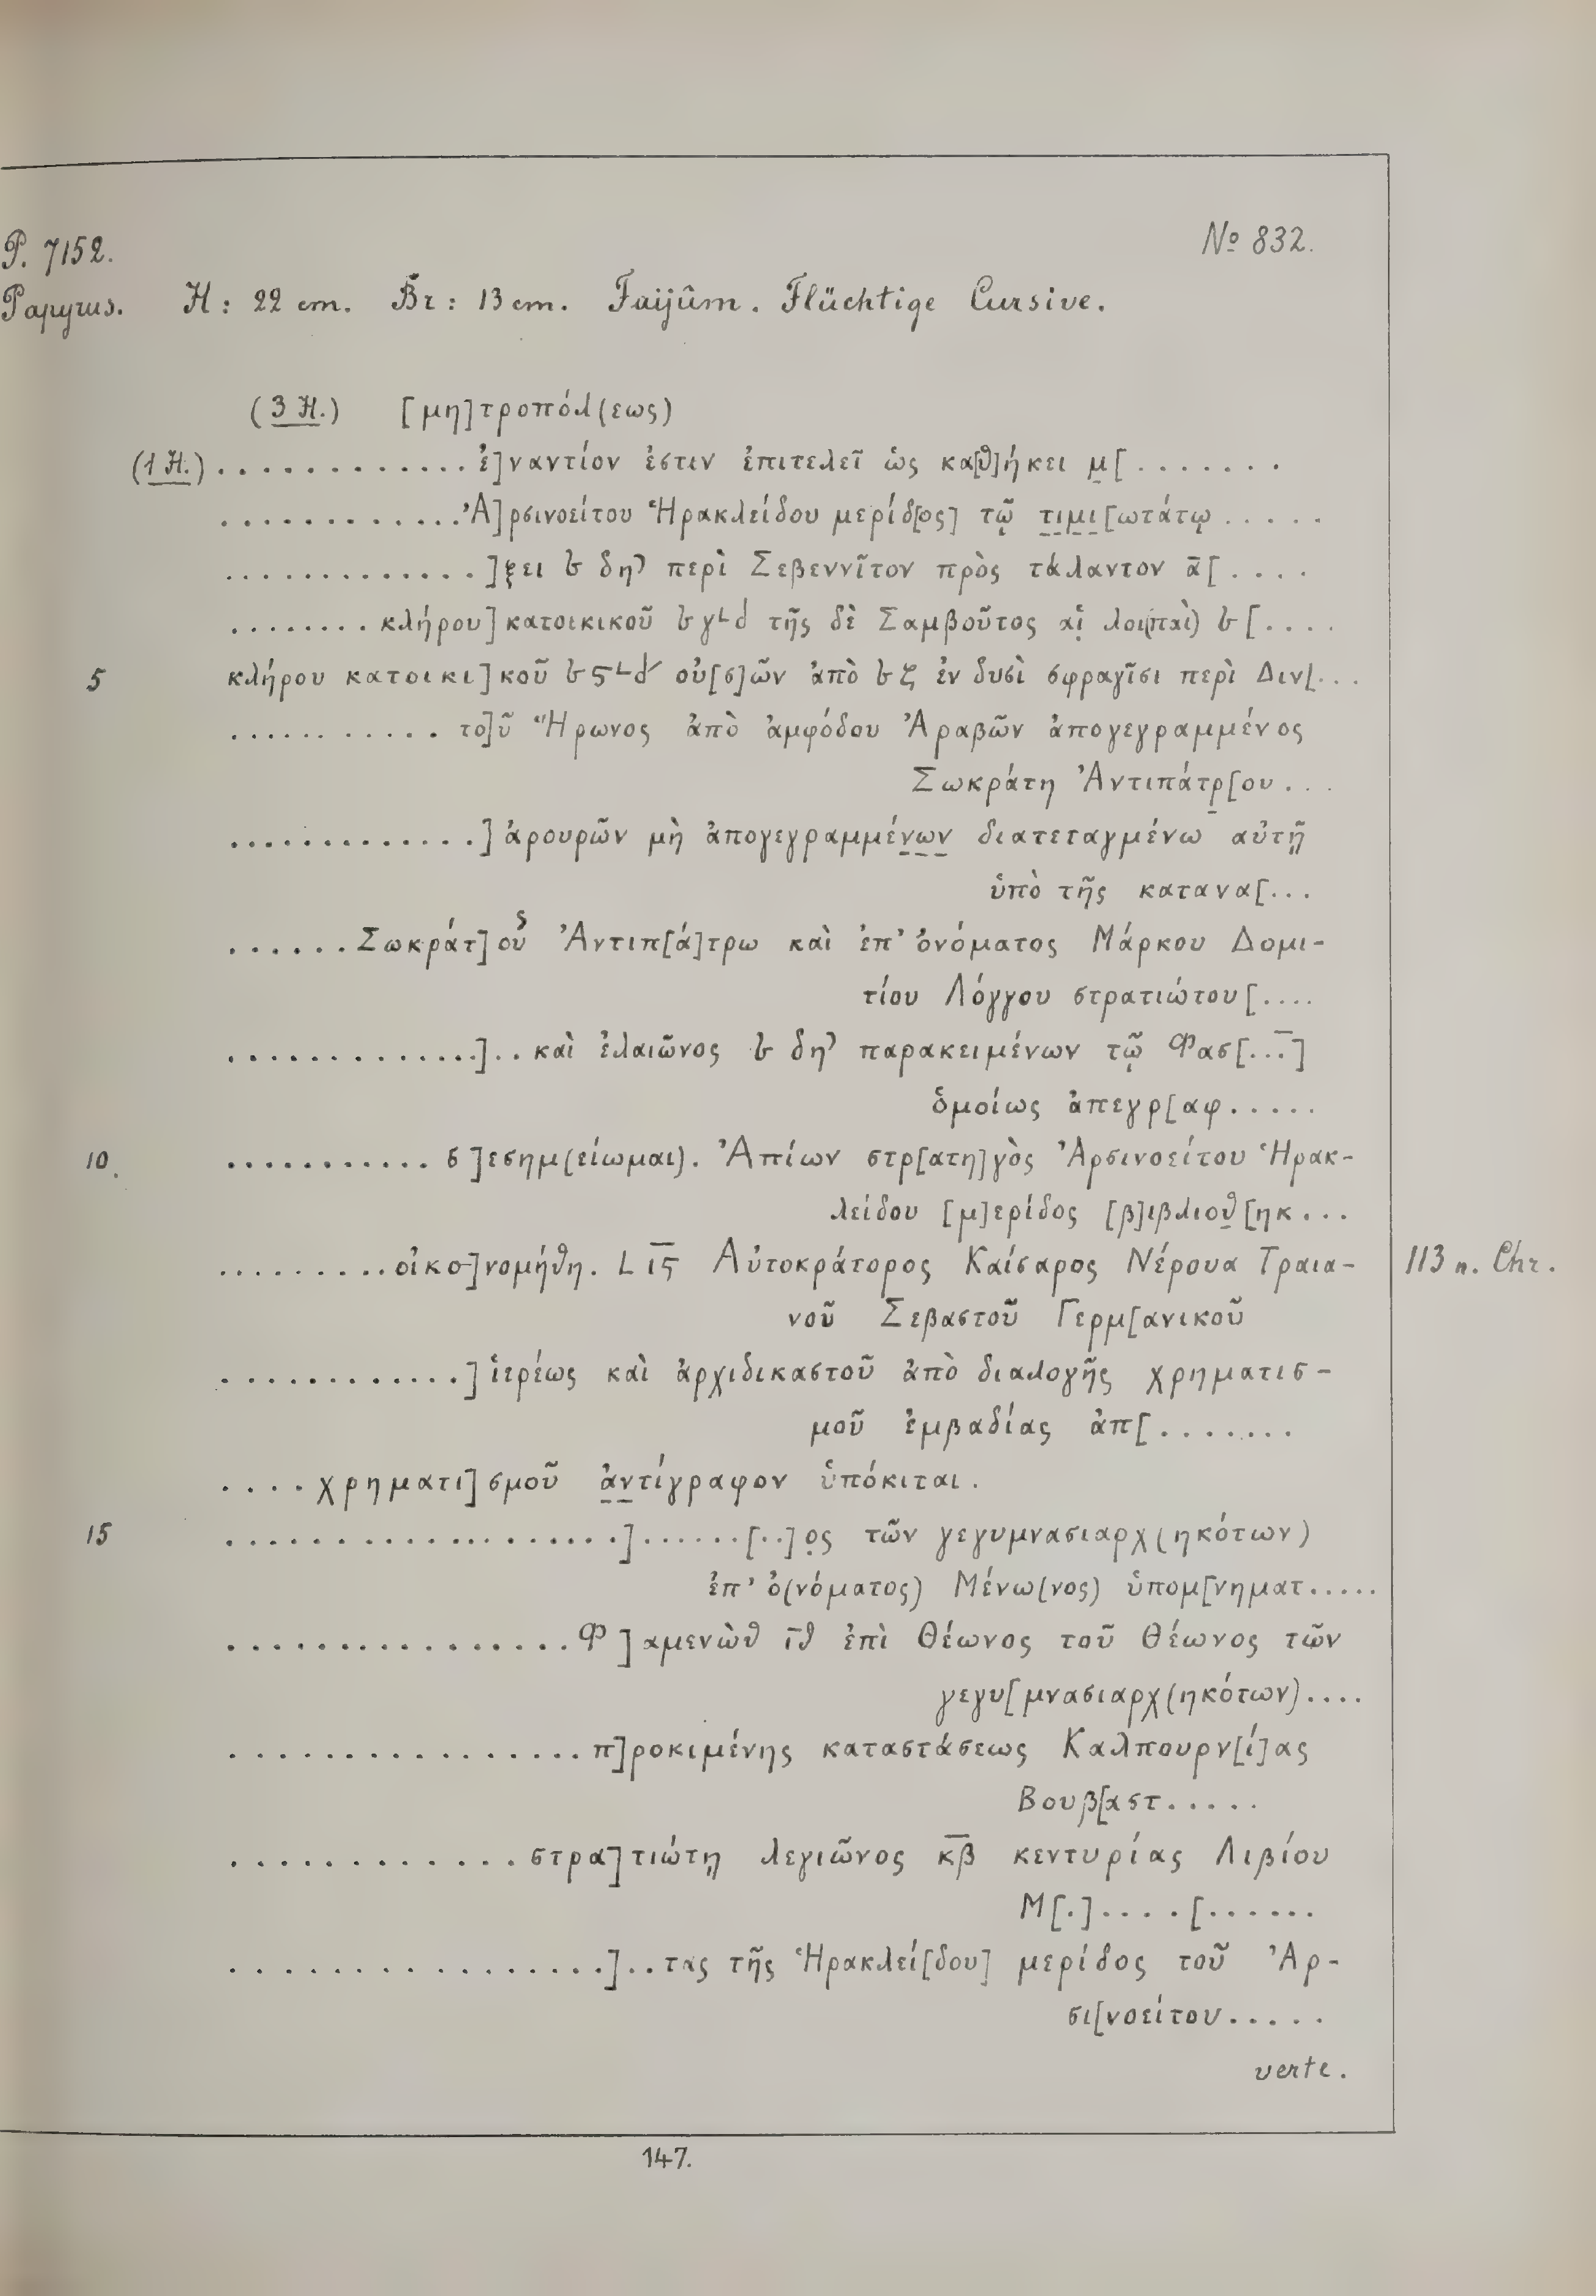 P. 7152. № 832.
Papyrus. H: 22 cm. Br: 13 cm. Faijûm. Flüchtige Cursive.
(3 H.) [μη]τροπόλ(εως)
(1 H.) ............ἐ]ναντίον ἐστιν ἐπιτελεῖ ὡς κα[θ]ήκει μ[.......
............Ἀ]ρσινοείτου Ἡρακλείδου μερίδ[ος] τῷ τιμι[ωτάτῳ.....
.............]ξει 𐅵 δη περὶ Σεβεννῖτον πρὸς τάλαντον ᾱ[....
........κλήρου] κατοικικοῦ γ∟δ τῆς δὲ Σαμβοῦτος αἱ λοι(παὶ) [....
5 κλήρου κατοικι]κοῦ ϛ∟δ οὐ[σ]ῶν ἀπὸ ζ ἐν δυσὶ σφραγῖσι περὶ Διν[...
...........το]ῦ Ἥρωνος ἀπὸ ἀμφόδου Ἀραβῶν ἀπογεγραμμένος
Σωκράτη Ἀντιπάτρ[ου...
.............] ἀρουρῶν μὴ ἀπογεγραμμένων διατεταγμένω αὐτῇ
ὑπὸ τῆς κατανα[...
......Σωκράτ]ους Ἀντιπ[ά]τρω καὶ ἐπ’ ὀνόματος Μάρκου Δομι-
τίου Λόγγου στρατιώτου[....
.............].. καὶ ἐλαιῶνος δη παρακειμένων τῷ Φασ[...]
ὁμοίως ἀπεγρ[αφ.....
10. ...........σ]εσημ(είωμαι). Ἀπίων στρ[ατη]γὸς Ἀρσινοείτου Ἡρακ-
λείδου [μ]ερίδος [β]ιβλιοθ[ηκ...
.........οἰκο]νομήθη. L ι̅ϛ̅ Αὐτοκράτορος Καίσαρος Νέρουα Τραια- 113 n. Chr.
νοῦ Σεβαστοῦ Γερμ[ανικοῦ
............] ἱερέως καὶ ἀρχιδικαστοῦ ἀπὸ διαλογῆς χρηματισ-
μοῦ ἐμβαδίας ἀπ[.......
....χρηματι]σμοῦ ἀντίγραφον ὑπόκιται.
15 ...................]......[..]ος τῶν γεγυμνασιαρχ(ηκότων)
ἐπ’ ὀ(νόματος) Μένω(νος) ὑπομ[νηματ.....
................Φ]αμενὼθ ι̅θ̅ ἐπὶ Θέωνος τοῦ Θέωνος τῶν
γεγυ[μνασιαρχ(ηκότων)....
................π]ροκιμένης καταστάσεως Καλπουρν[ί]ας
Βουβ[αστ.....
.............στρα]τιώτῃ λεγιῶνος κ̅β̅ κεντυρίας Λιβίου
Μ[.]....[......
.................]..τας τῆς Ἡρακλεί[δου] μερίδος τοῦ Ἀρ-
σι[νοείτου.....
verte.
147.